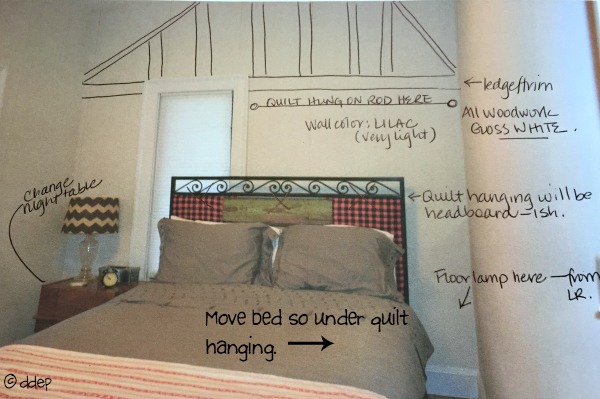 QUILT HUNG ON ROD HERE
Wall color: LILAC
(very light)
← ledge/trim
All Woodwork
GLOSS WHITE.
change
night table
← Quilt hanging will be
headboard-ish.
Floor lamp here — from
LR.
Move bed so under quilt
hanging. →
© ddep